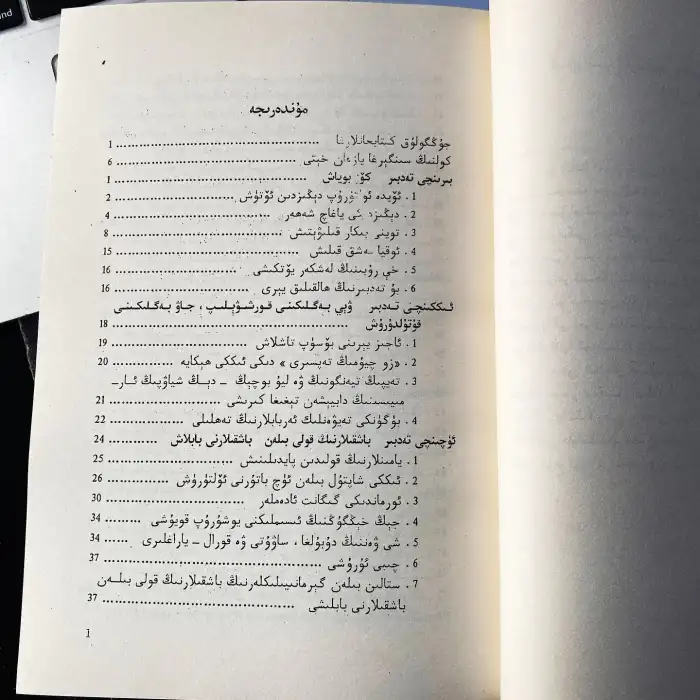 مۇندەرىجە
جۇڭگولۇق كىتابخانلارغا ........ 1
كولنىڭ سىنگېرغا يازغان خېتى ........ 6
بىرىنچى تەدبىر كۆز بوياش ........ 1
1 . ئۆيدە ئولتۇرۇپ دېڭىزدىن ئۆتۈش ........ 2
2 . دېڭىزدىكى ياغاچ شەھەر ........ 4
3 . توينى بىكار قىلىۋېتىش ........ 8
4 . ئوقيا مەشق قىلىش ........ 15
5 . خې رۇبىنىڭ لەشكەر يۆتكىشى ........ 16
6 . بۇ تەدبىرنىڭ ھالقىلىق يېرى ........ 16
ئىككىنچى تەدبىر ۋېي بەگلىكىنى قورشىۋېلىپ ، جاۋ بەگلىكىنى
قۇتۇلدۇرۇش ........ 18
1 . ئاجىز يېرىنى بۆسۈپ تاشلاش ........ 19
2 . «زو چيۇمىڭ تەپسىرى» دىكى ئىككى ھېكايە ........ 20
3 . تەيپىڭ تيەنگونىڭ ۋە ليۇ بوچېڭ – دېڭ شياۋپىڭ ئار–
مىيىسىنىڭ دابيېشەن تېغىغا كىرىشى ........ 21
4 . بۈگۈنكى تەيۋەنلىك ئەربابلارنىڭ تەھلىلى ........ 22
ئۈچىنچى تەدبىر باشقىلارنىڭ قولى بىلەن باشقىلارنى بابلاش ........ 24
1 . يامىنلارنىڭ قولىدىن پايدىلىنىش ........ 25
2 . ئىككى شاپتۇل بىلەن ئۈچ باتۇرنى ئۆلتۈرۈش ........ 26
3 . ئورماندىكى گىگانت ئادەملەر ........ 30
4 . جېڭ خېڭگۇڭنىڭ ئىسملىكنى يوشۇرۇپ قويۇشى ........ 34
5 . شى ۋەننىڭ دۇبۇلغا ، ساۋۇتى ۋە قورال – ياراغلىرى ........ 34
6 . چىبى ئۇرۇشى ........ 37
7 . ستالىن بىلەن گېرمانىيىلىكلەرنىڭ باشقىلارنىڭ قولى بىلەن
باشقىلارنى بابلىشى ........ 37
1